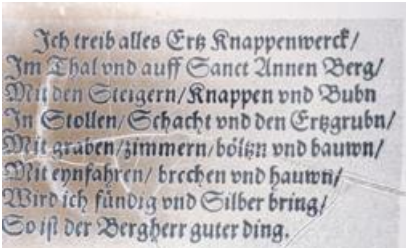 Ich treib alles Ertz Knappenwerck/
Im Thal vnd auff Sanct Annen Berg/
Mit den Steigern/Knappen vnd Bubn
In Stollen/Schacht vnd den Ertzgrubn/
Mit graben/zimmern/böltzn vnd bauwn/
Mit eynfahren/brechen vnd hauwn/
Wird ich fündig vnd Silber bring/
So ist der Bergherr guter ding.